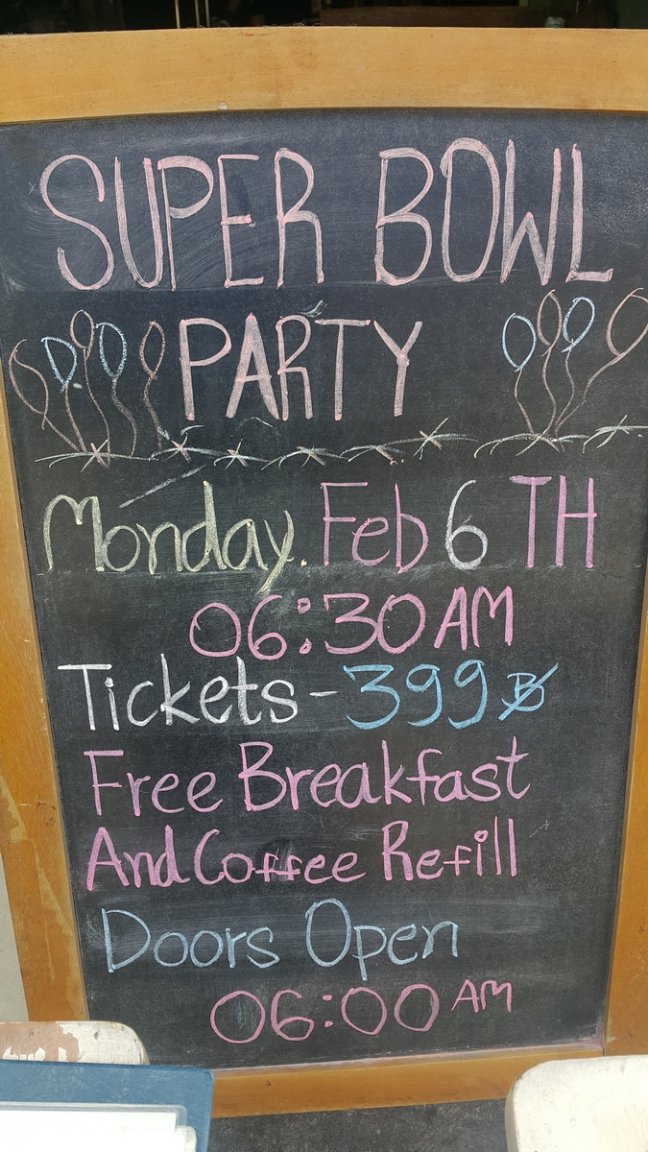 SUPER BOWL
PARTY
Monday. Feb 6 TH
06:30 AM
Tickets - 399฿
Free Breakfast
And Coffee Refill
Doors Open
06:00 AM